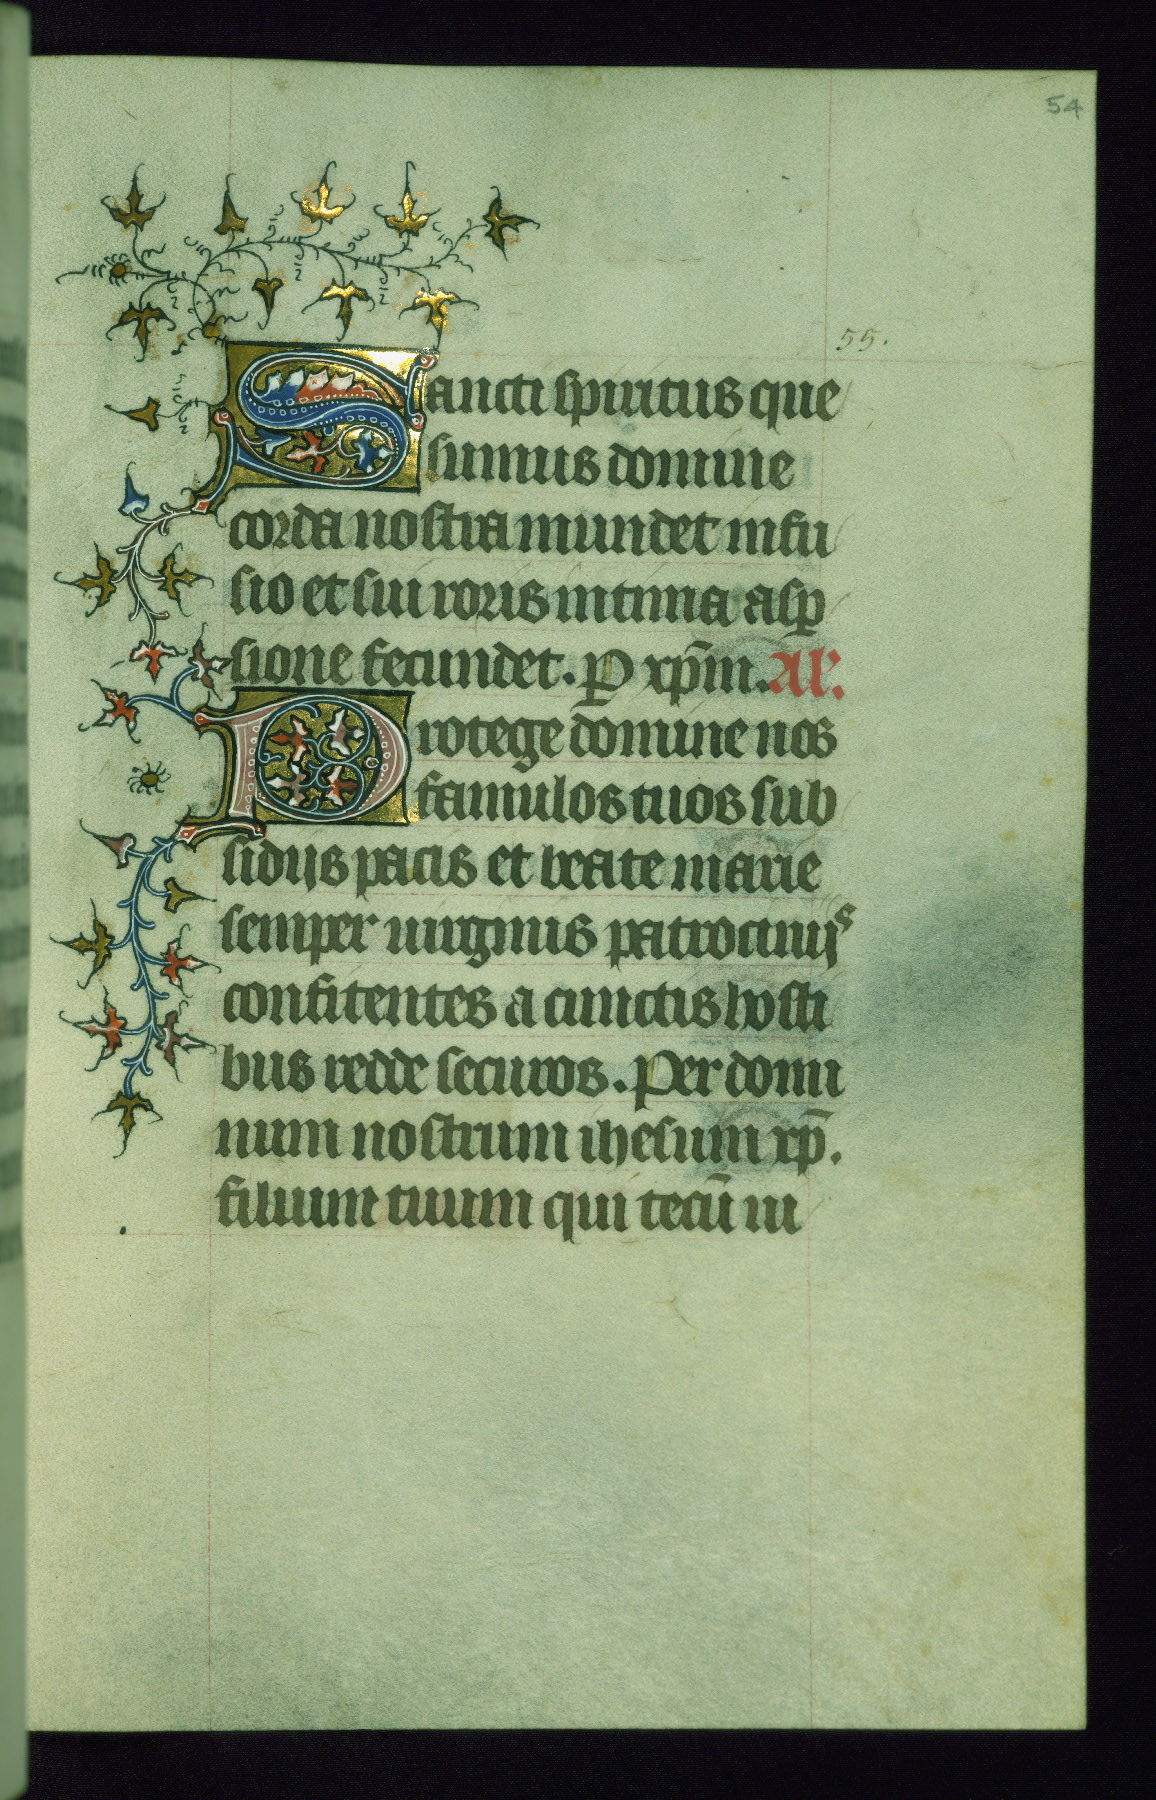 54
55.
Sancti spiritus que
sumus domine
corda nostra mundet infu
sio et sui roris intima asp
sione fecundet. P xp̄m. Al'.
Protege domine nos
famulos tuos sub
sidijs pacis et beate marie
semper uirginis patrocinijs
confitentes a cunctis hosti
bus redde securos. Per domi
num nostrum ihesum xp̄.
filium tuum qui tecū ui